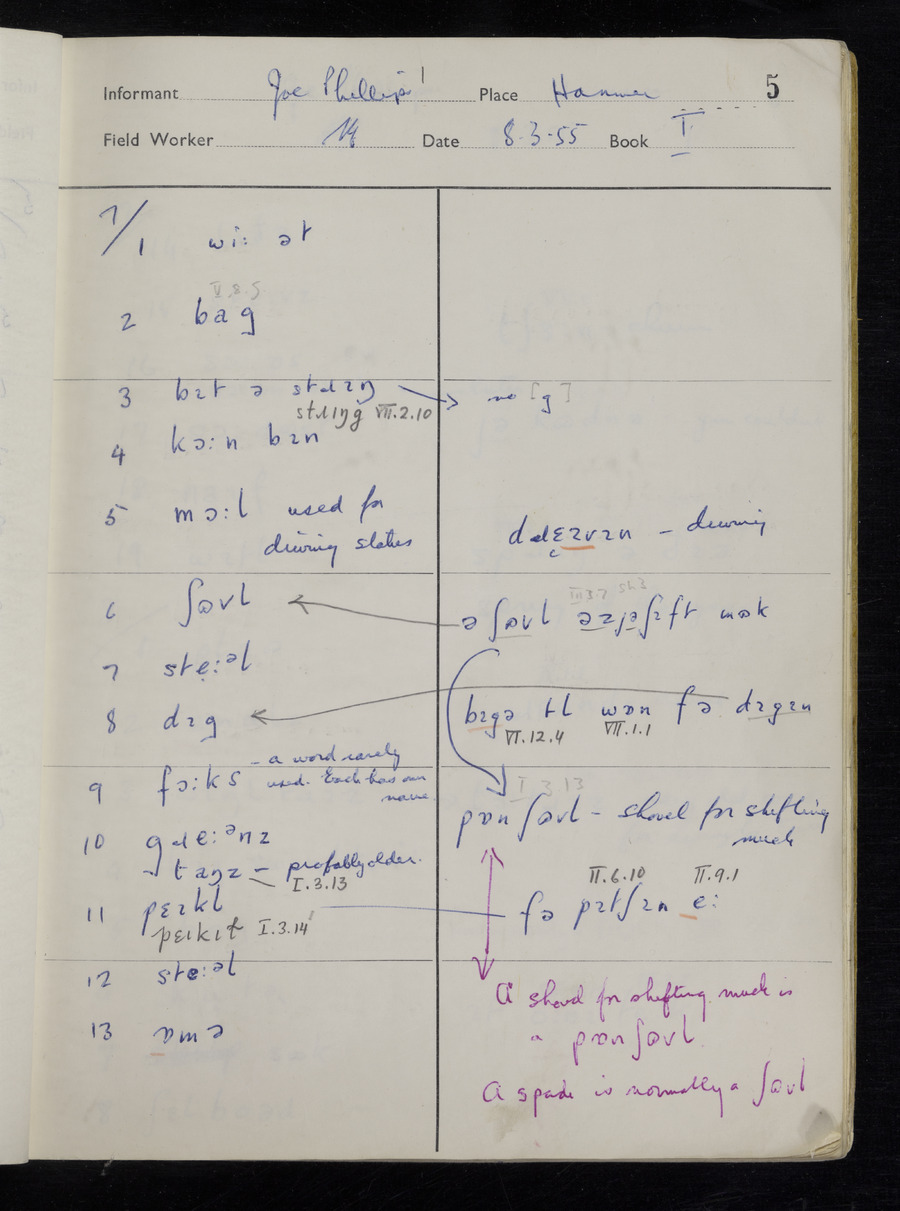 Informant Joe Phillips Place Hanmer 5
Field Worker Date 8.3.55 Book I
7/1 wiː ət
V.8.5
2 bag
3 bɪt ə stɹɪŋ no [g]
stɹɪŋg VII.2.10
4 kɔːn bɪn
5 mɔːl used for
driving stakes
dɹɛɪvɪn – driving
III.3.7
6 ʃɒvl
ə ʃɒvl əzjəʃɪft mək
7 steːəl
8 dɪg
bɪgə tl wɒn fə dɪgɪn
VI.12.4 VII.1.1
9 fɔːks – a word rarely
used. Each has own
name.
I 3 13
pɒnʃɒvl – shovel for shifting
muck
10 gɹeːənz
taŋz – probably older.
I.3.13
II.6.10 II.9.1
11 pɛɪkl fə pɪtʃɪn eː
pɛɪkɪt I.3.14
12 steːəl
A shovel for shifting muck is
a pɒnʃɒvl
13 ɒmə
A spade is normally a ʃɒvl